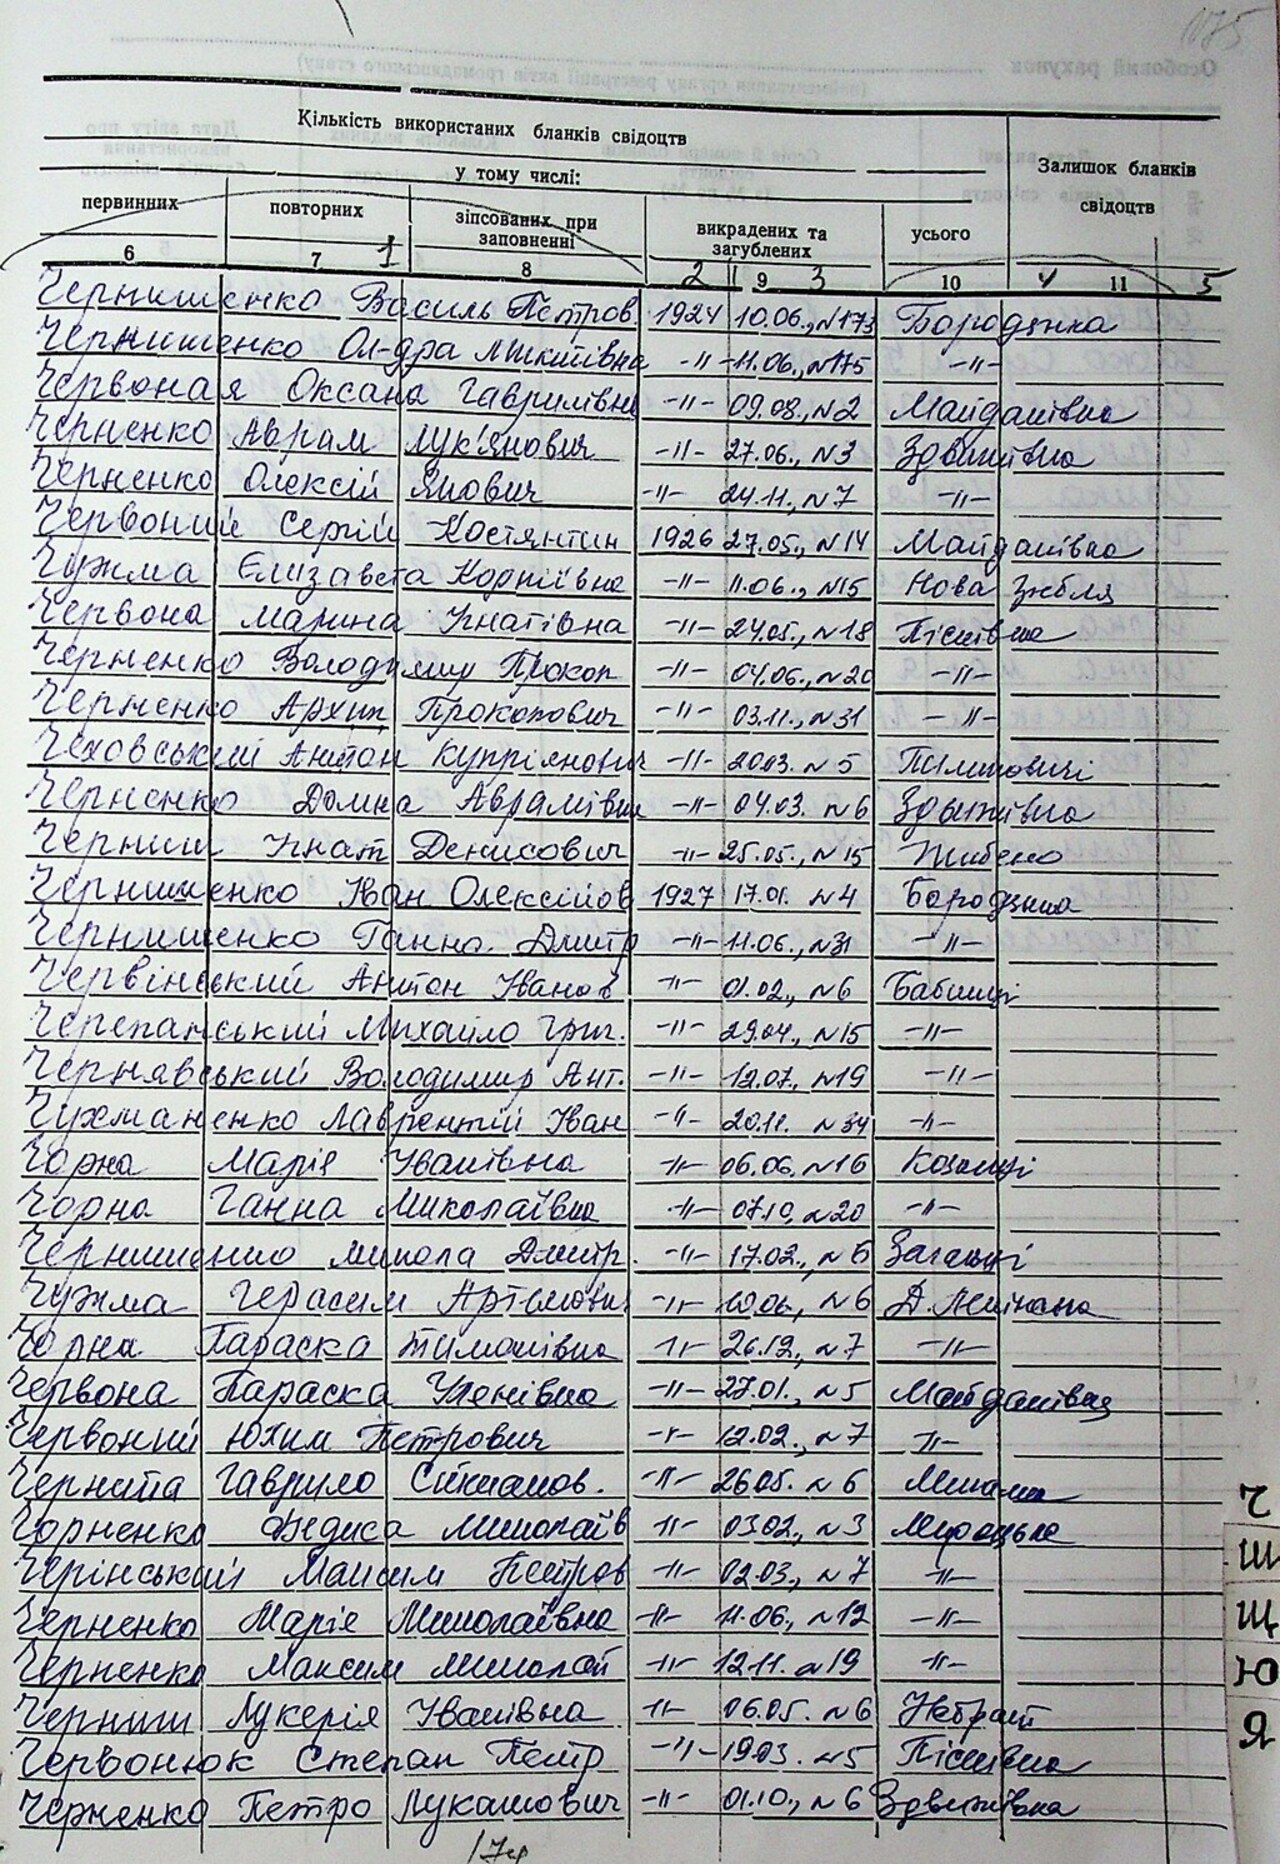 1175
Кількість використаних бланків свідоцтв
у тому числі:
Залишок бланків свідоцтв
первинних
повторних
зіпсованих при заповненні
викрадених та загублених
усього
6 7 1 8 2 9 3 10 4 11 5
Чернишенко Василь Петров. 1924 10.06., №173 Бородянка
Чернишенко Ол-дра Микитівна -"- 11.06., №175 -"-
Червоная Оксана Гаврилівна -"- 09.08., №2 Майданівка
Черненко Аврам Лук'янович -"- 27.06., №3 Здвижівка
Черненко Олексій Янович -"- 24.11., №7 -"-
Червоний Сергій Костянтин 1926 27.05., №14 Майданівка
Чужма Єлизавета Корніївна -"- 11.06., №15 Нова Гребля
Червона Марина Ігнатівна -"- 24.05., №18 Пісківка
Черненко Володимир Прокоп -"- 04.06., №20 -"-
Черненко Архип Прокопович -"- 03.11., №31 -"-
Чеховський Антон Купріянович -"- 20.03. №5 Пилиповичі
Черненко Домна Аврамівна -"- 04.03. №6 Здвижівка
Черниш Ігнат Денисович -"- 25.05., №15 Жибено
Чернишенко Іван Олексійов 1927 17.01. №4 Бородянка
Чернишенко Ганна Дмитр -"- 11.06., №31 -"-
Червінський Антон Іванов -"- 01.02., №6 Бабинці
Черепанський Михайло Григ. -"- 29.04., №15 -"-
Чернявський Володимир Ант. -"- 12.07., №19 -"-
Чухманенко Лаврентій Іван -"- 20.11. №34 -"-
Чорна Марія Іванівна -"- 06.06. №16 Козинці
Чорна Ганна Миколаївна -"- 07.10, №20 -"-
Чернишенко Микола Дмитр. -"- 17.02., №6 Загальці
Чужма Герасим Артемович -"- 10.06., №6 Д. Ленінана
Чорна Параска Тимошівна -"- 26.12., №7 -"-
Червона Параска Улянівна -"- 27.01., №5 Майданівка
Червоний Юхим Петрович -"- 12.02., №7 -"-
Черната Гаврило Степанов. -"- 26.05. №6
Чорненко Федися Миколаїв -"- 03.02., №3 Мироцьке
Черінський Максим Петров -"- 02.03., №7 -"-
Черненко Марія Миколаївна -"- 11.06., №12 -"-
Черненко Максим Миколай -"- 12.11. №19 -"-
Черниш Лукерія Іванівна -"- 06.05. №6 Небрат
Червонюк Степан Петр -"- 19.03. №5 Пісківка
Черненко Петро Лукашович -"- 01.10., №6 Здвижівка
Ч
Ш
Щ
Ю
Я